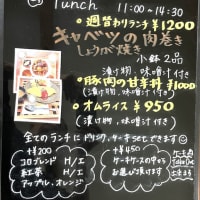 lunch 11:00～14:30
週替わりランチ ¥1200
キャベツの肉巻き
しょうが焼き
小鉢2品
漬け物、味噌汁付き
豚肉の甘辛丼 ¥1000
漬け物・味噌汁付き
オムライス ¥950
(漬け物、味噌汁付き)
全てのランチにドリンク、ケーキSetできます
+¥200
+¥450
コロブレンド H/I
ケーキケースの中から
紅茶 H/I
お選び頂けます
アップル、オレンジ